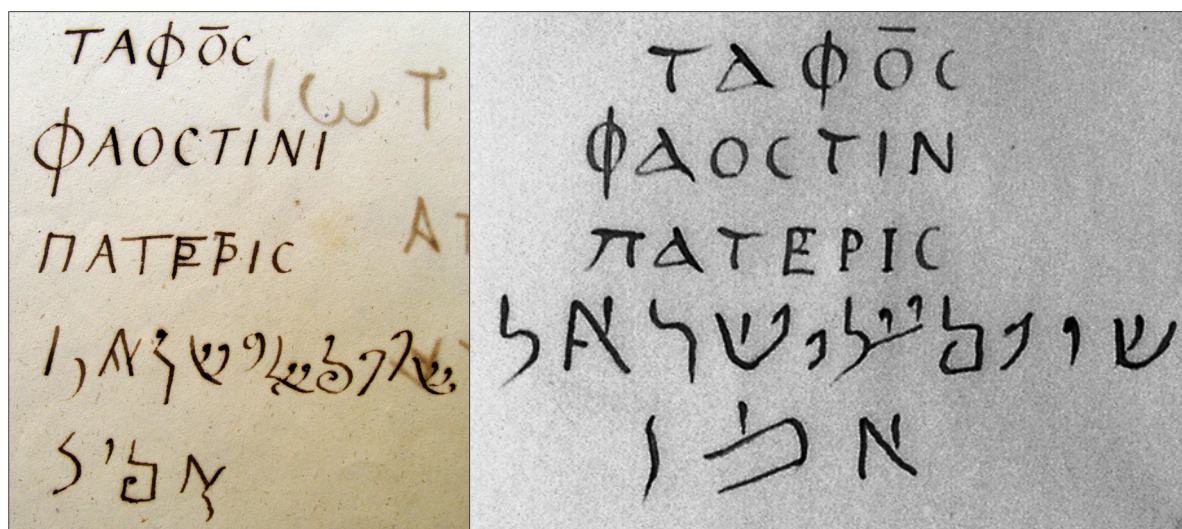 ΤΑΦŌC
ΦΑΟCΤΙΝΙ
ΠΑΤΕΡΙC
ΤΑΦŌC
ΦΑΟCΤΙΝ
ΠΑΤΕΡΙC
שלום על ישראל
אמן